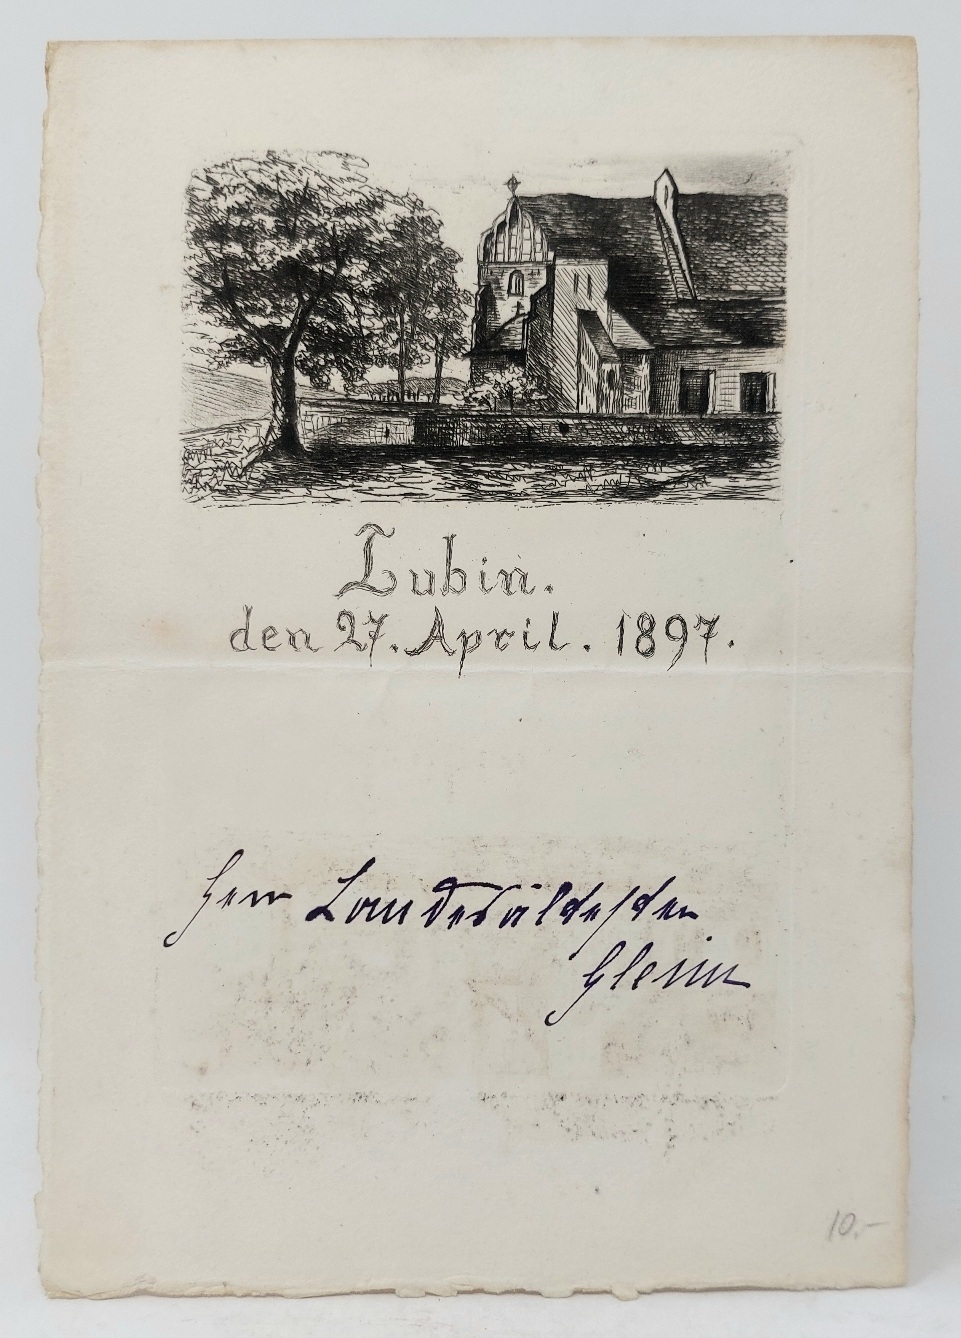 Lubin.
den 27. April. 1897.
Herr Landesältesten
Gleim
10.-